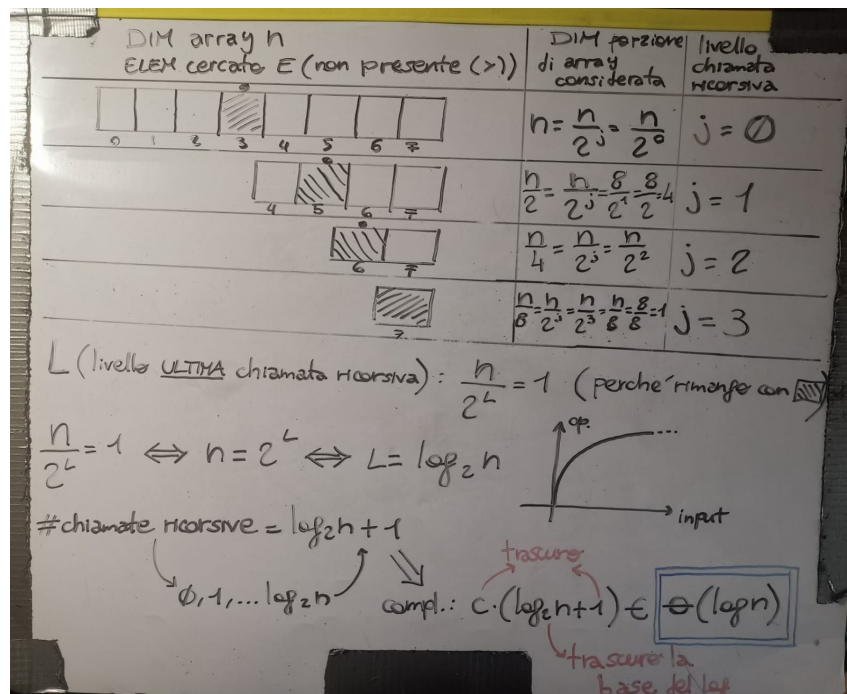 DIM array n
ELEM cercato E (non presente (>))
DIM porzione di array considerata
livello chiamata ricorsiva
0 1 2 3 4 5 6 7
n = n/2^j = n/2^0
j = 0
4 5 6 7
n/2 = n/2^j = 8/2^1 = 8/2 = 4
j = 1
6 7
n/4 = n/2^j = n/2^2
j = 2
7
n/8 = n/2^j = n/2^3 = n/8 = 8/8 = 1
j = 3
L (livello ULTIMA chiamata ricorsiva) : n/2^L = 1 (perché rimango con )
n/2^L = 1 ⇔ n = 2^L ⇔ L = log₂n
op.
input
#chiamate ricorsive = log₂n + 1
0, 1, ... log₂n
trascuro
compl.: C·(log₂n+1) ∈ Θ(logn)
trascuro la
base del log